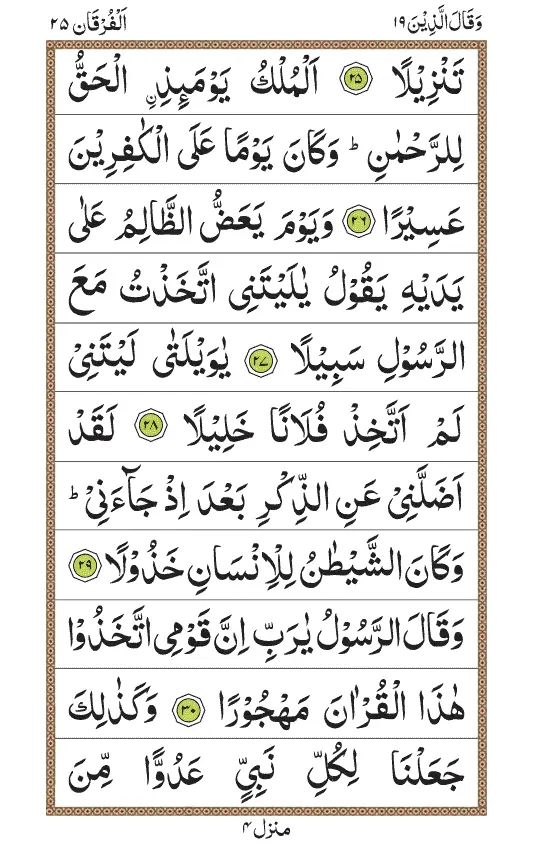 وَقَالَ الَّذِیْنَ ۱۹
اَلْفُرْقَان ۲۵
تَنْزِیْلًا ۲۵ اَلْمُلْكُ یَوْمَىِٕذِ ِ۟الْحَقُّ
لِلرَّحْمٰنِ ؕ وَكَانَ یَوْمًا عَلَی الْكٰفِرِیْنَ
عَسِیْرًا ۲۶ وَیَوْمَ یَعَضُّ الظَّالِمُ عَلٰی
یَدَیْهِ یَقُوْلُ یٰلَیْتَنِی اتَّخَذْتُ مَعَ
الرَّسُوْلِ سَبِیْلًا ۲۷ یٰوَیْلَتٰی لَیْتَنِیْ
لَمْ اَتَّخِذْ فُلَانًا خَلِیْلًا ۲۸ لَقَدْ
اَضَلَّنِیْ عَنِ الذِّكْرِ بَعْدَ اِذْ جَآءَنِیْ ؕ
وَكَانَ الشَّیْطٰنُ لِلْاِنْسَانِ خَذُوْلًا ۲۹
وَقَالَ الرَّسُوْلُ یٰرَبِّ اِنَّ قَوْمِی اتَّخَذُوْا
هٰذَا الْقُرْاٰنَ مَهْجُوْرًا ۳۰ وَكَذٰلِكَ
جَعَلْنَا لِكُلِّ نَبِیٍّ عَدُوًّا مِّنَ
منزل ۴